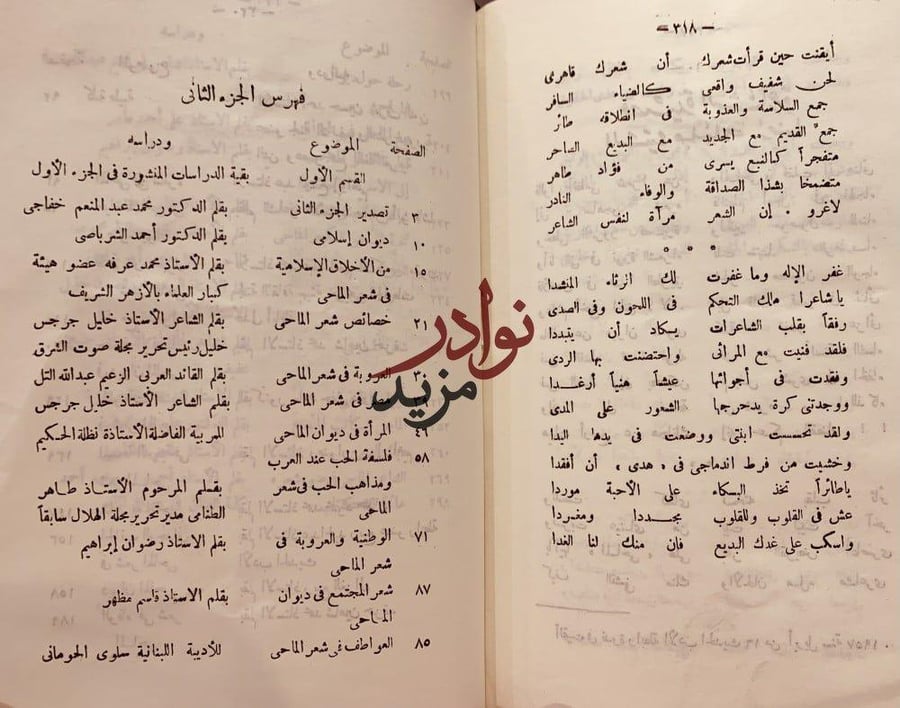 — ٣١٨ —
أيقنت حين قرأت شعرك أن شعرك قاهرى
لحن شفيف واقعى كالضياء السافر
جمع السلاسة والعذوبة فى انطلاقه طائر
جمع القديم مع الجديد مع البديع الساحر
متفجراً كالنبع يسرى من فؤاد طاهر
متضمخا بشذا الصداقة والوفاء النادر
لاغرو . إن الشعر مرآة لنفس الشاعر
* * *
غفر الإله وما غفرت لك الرثاء المنشدا
يا شاعرا ملك التحكم فى اللحون وفى الصدى
رفقاً بقلب الشاعرات يكاد أن يتبددا
فلقد فنيت مع المراثى واحتضنت بها الردى
وفقدت فى أجوائها عيشاً هنياً أرغدا
ووجدتنى كرة يدحرجها الشعور على المدى
ولقد تحسست ابنتى ووضعت فى يدها اليدا
وخشيت من فرط اندماجى فى « هدى » أن أفقدا
ياطائراً تخذ البكاء على الأحبة موردا
عش فى القلوب وللقلوب مجددا ومغردا
واسكب على غدك البديع فإن منك لنا الغدا
فهرس الجزء الثانى
الصفحة الموضوع ودراسه
القسم الأول بقية الدراسات المنشورة فى الجزء الأول
٣ تصدير الجزء الثانى بقلم الدكتور محمد عبد المنعم خفاجى
١٠ ديوان إسلامى بقلم الدكتور أحمد الشرباصى
١٥ من الأخلاق الإسلامية بقلم الأستاذ محمد عرفه عضو هيئة
فى شعر الماحى كبار العلماء بالأزهر الشريف
٢١ خصائص شعر الماحى بقلم الشاعر الأستاذ خليل جرجس
خليل رئيس تحرير مجلة صوت الشرق
٣٠ العروبة فى شعر الماحى بقلم القائد العربى الزعيم عبدالله التل
مصر فى شعر الماحى بقلم الشاعر الأستاذ خليل جرجس
٤٦ المرأة فى ديوان الماحى المربية الفاضلة الأستاذة نظلة الحكيم
٥٨ فلسفة الحب عند العرب
ومذاهب الحب فى شعر بقلم المرحوم الأستاذ طاهر
الماحى الطناحى مدير تحرير مجلة الهلال سابقاً
٧١ الوطنية والعروبة فى بقلم الاستاذ رضوان إبراهيم
شعر الماحى
٨٧ شعر المجتمع فى ديوان بقلم الاستاذ قاسم مظهر
الماحى
٨٥ العواطف فى شعر الماحى للأديبة اللبنانية سلوى الحومانى
نوادر
مزيد